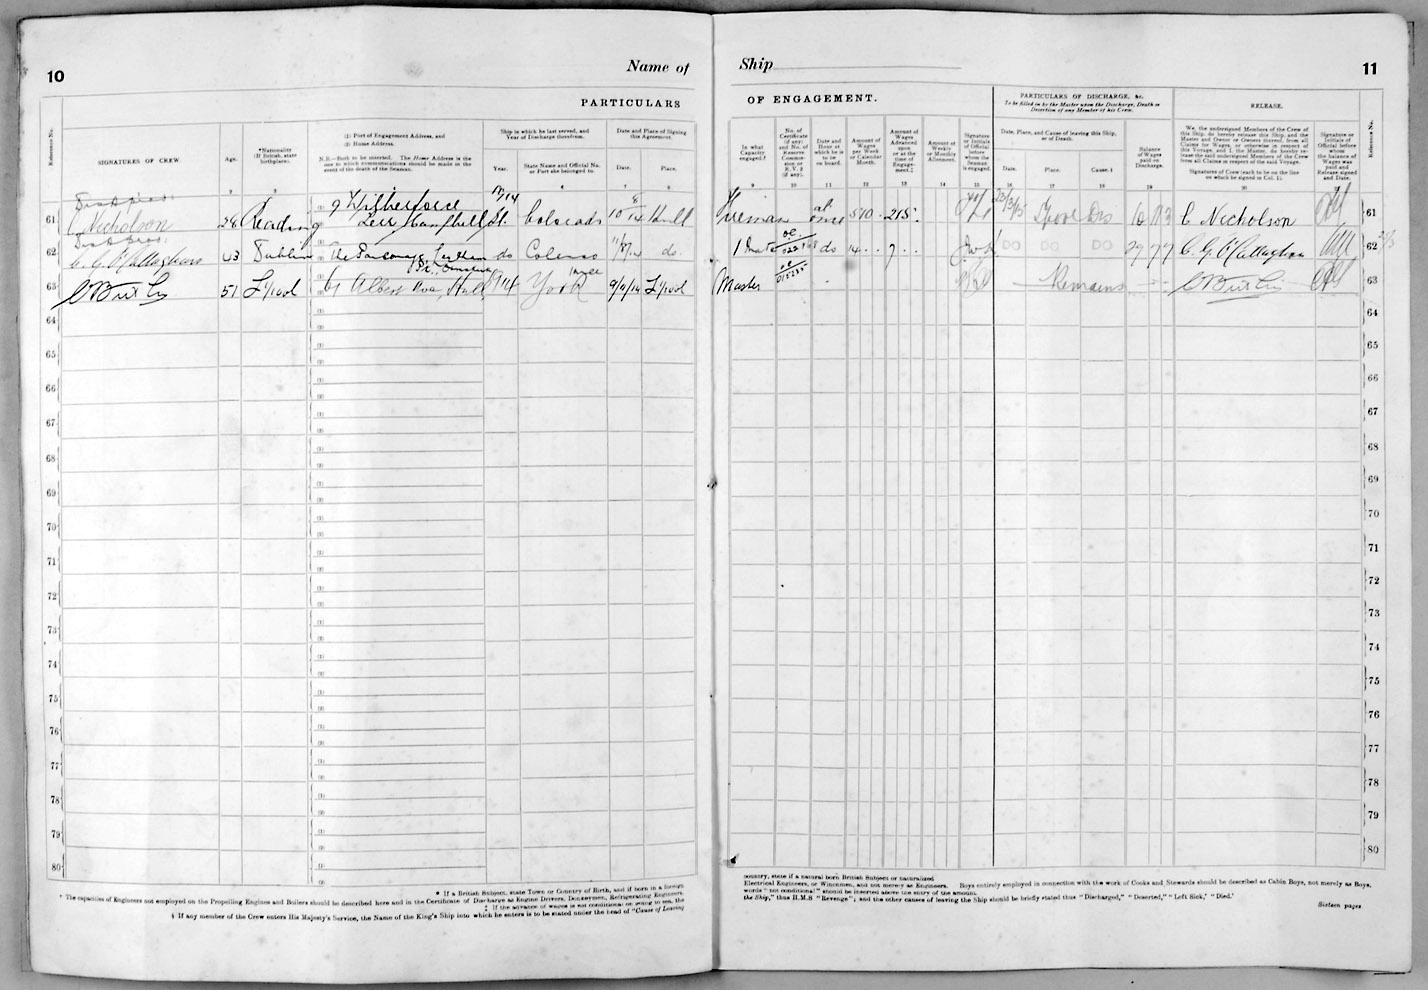 10
Name of
Ship
11
PARTICULARS
OF ENGAGEMENT.
PARTICULARS OF DISCHARGE, &c.
To be filled in by the Master upon the Discharge, Death or Desertion of any Member of his Crew.
RELEASE.
Reference No.
SIGNATURES OF CREW.
Age.
*Nationality
(If British, state birthplace).
(1) Port of Engagement Address, and
(2) Home Address.
N.B.—Both to be inserted. The Home Address is the one to which communications should be made in the event of the death of the Seaman.
Ship in which he last served, and Year of Discharge therefrom.
Year.
State Name and Official No. or Port she belonged to.
Date and Place of Signing this Agreement.
Date.
Place.
In what Capacity engaged.†
No. of Certificate (if any) and No. of Reserve Commission or R.V. 2 (if any).
Date and Hour at which he is to be on board.
Amount of Wages per Week or Calendar Month.
Amount of Wages Advanced upon or at the time of Engagement.‡
Amount of Weekly or Monthly Allotment.
Signature or Initials of Official before whom the Seaman is engaged.
Date, Place, and Cause of leaving this Ship, or of Death.
Date.
Place.
Cause.§
Balance of Wages paid on Discharge.
We, the undersigned Members of the Crew of this Ship, do hereby release this Ship, and the Master and Owner or Owners thereof, from all Claims for Wages, or otherwise in respect of this Voyage, and I, the Master, do hereby release the said undersigned Members of the Crew from all Claims in respect of the said Voyage.
Signatures of Crew (each to be on the line on which he signed in Col. 1).
Signature or Initials of Official before whom the balance of Wages was paid and Release signed and Date.
Reference No.
61 C Nicholson 28 Reading 9 Wilberforce 12/14 Colorado 10 8/14 Hull Fireman at once 5 10 215 L'pool Dis 10 11 3 C Nicholson 61
62 C. G. O'Callaghan 43 Dublin The Parsonage do Colenso do. 1 Mate 022 do 14 7 DO DO DO 29 7 7 C. G. O'Callaghan 62
63 51 L'pool 61 Albert Ave, Hull 9/14 York 9/11/14 L'pool Master Remains 63
64 64
65 65
66 66
67 67
68 68
69 69
70 70
71 71
72 72
73 73
74 74
75 75
76 76
77 77
78 78
79 79
80 80
* If a British Subject, state Town or Country of Birth, and if born in a foreign
country, state if a natural born British Subject or naturalized
† The capacities of Engineers not employed on the Propelling Engines and Boilers should be described here and in the Certificate of Discharge as Engine Drivers, Donkeymen, Refrigerating Engineers,
Electrical Engineers, or Winchmen, and not merely as Engineers. Boys entirely employed in connection with the work of Cooks and Stewards should be described as Cabin Boys, not merely as Boys.
‡ If the advance of wages is not conditional on going to sea, the
words "not conditional" should be inserted above the entry of the amount.
§ If any member of the Crew enters His Majesty's Service, the Name of the King's Ship into which he enters is to be stated under the head of "Cause of Leaving
the Ship," thus H.M.S "Revenge"; and the other causes of leaving the Ship should be briefly stated thus "Discharged," "Deserted," "Left Sick,' "Died.'
Sixteen pages